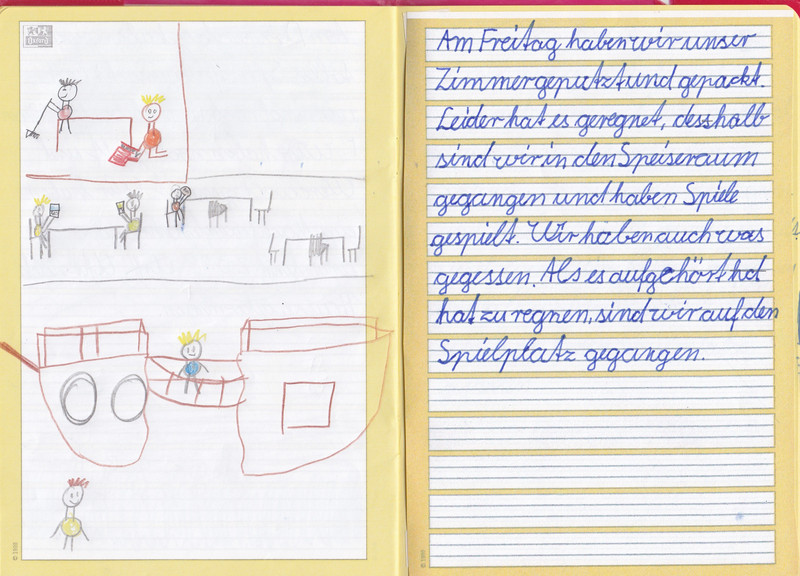 Am Freitag haben wir unser
Zimmer geputzt und gepackt.
Leider hat es geregnet, desshalb
sind wir in den Speiseraum
gegangen und haben Spiele
gespielt. Wir haben auch was
gegessen. Als es aufgehört hat
hat zu regnen, sind wir auf den
Spielplatz gegangen.